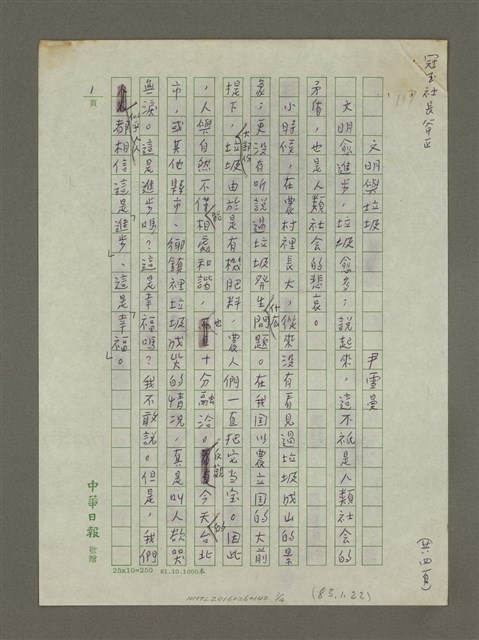 冠宝社長斧正
文明與垃圾　尹雪曼
文明愈進步，垃圾愈多；說起來，這不祇是人類社會的
矛盾，也是人類社會的悲哀。
小時候，在農村裡長大，從來沒有看見過垃圾成山的景
象；更沒有听說過垃圾發生什麼問題。在我国以農立国的大前
提下，大部份垃圾由於是有機肥料，農人們一直把它当宝。因此
，人與自然不僅能相處和諧，也十分融洽。反觀今天的台北
市，或其他縣市、鄉鎮裡垃圾成災的情況，真是叫人欲哭
無淚。這是進步嗎？這是幸福嗎？我不敢說。但是，我們
似乎人人都相信這是「進步」、這是「幸福」。
1
頁
中華日報 敬贈
25x10=250 81.10.1000本
(共四頁)
(83.1.22)
NMTL20160260140 1/4